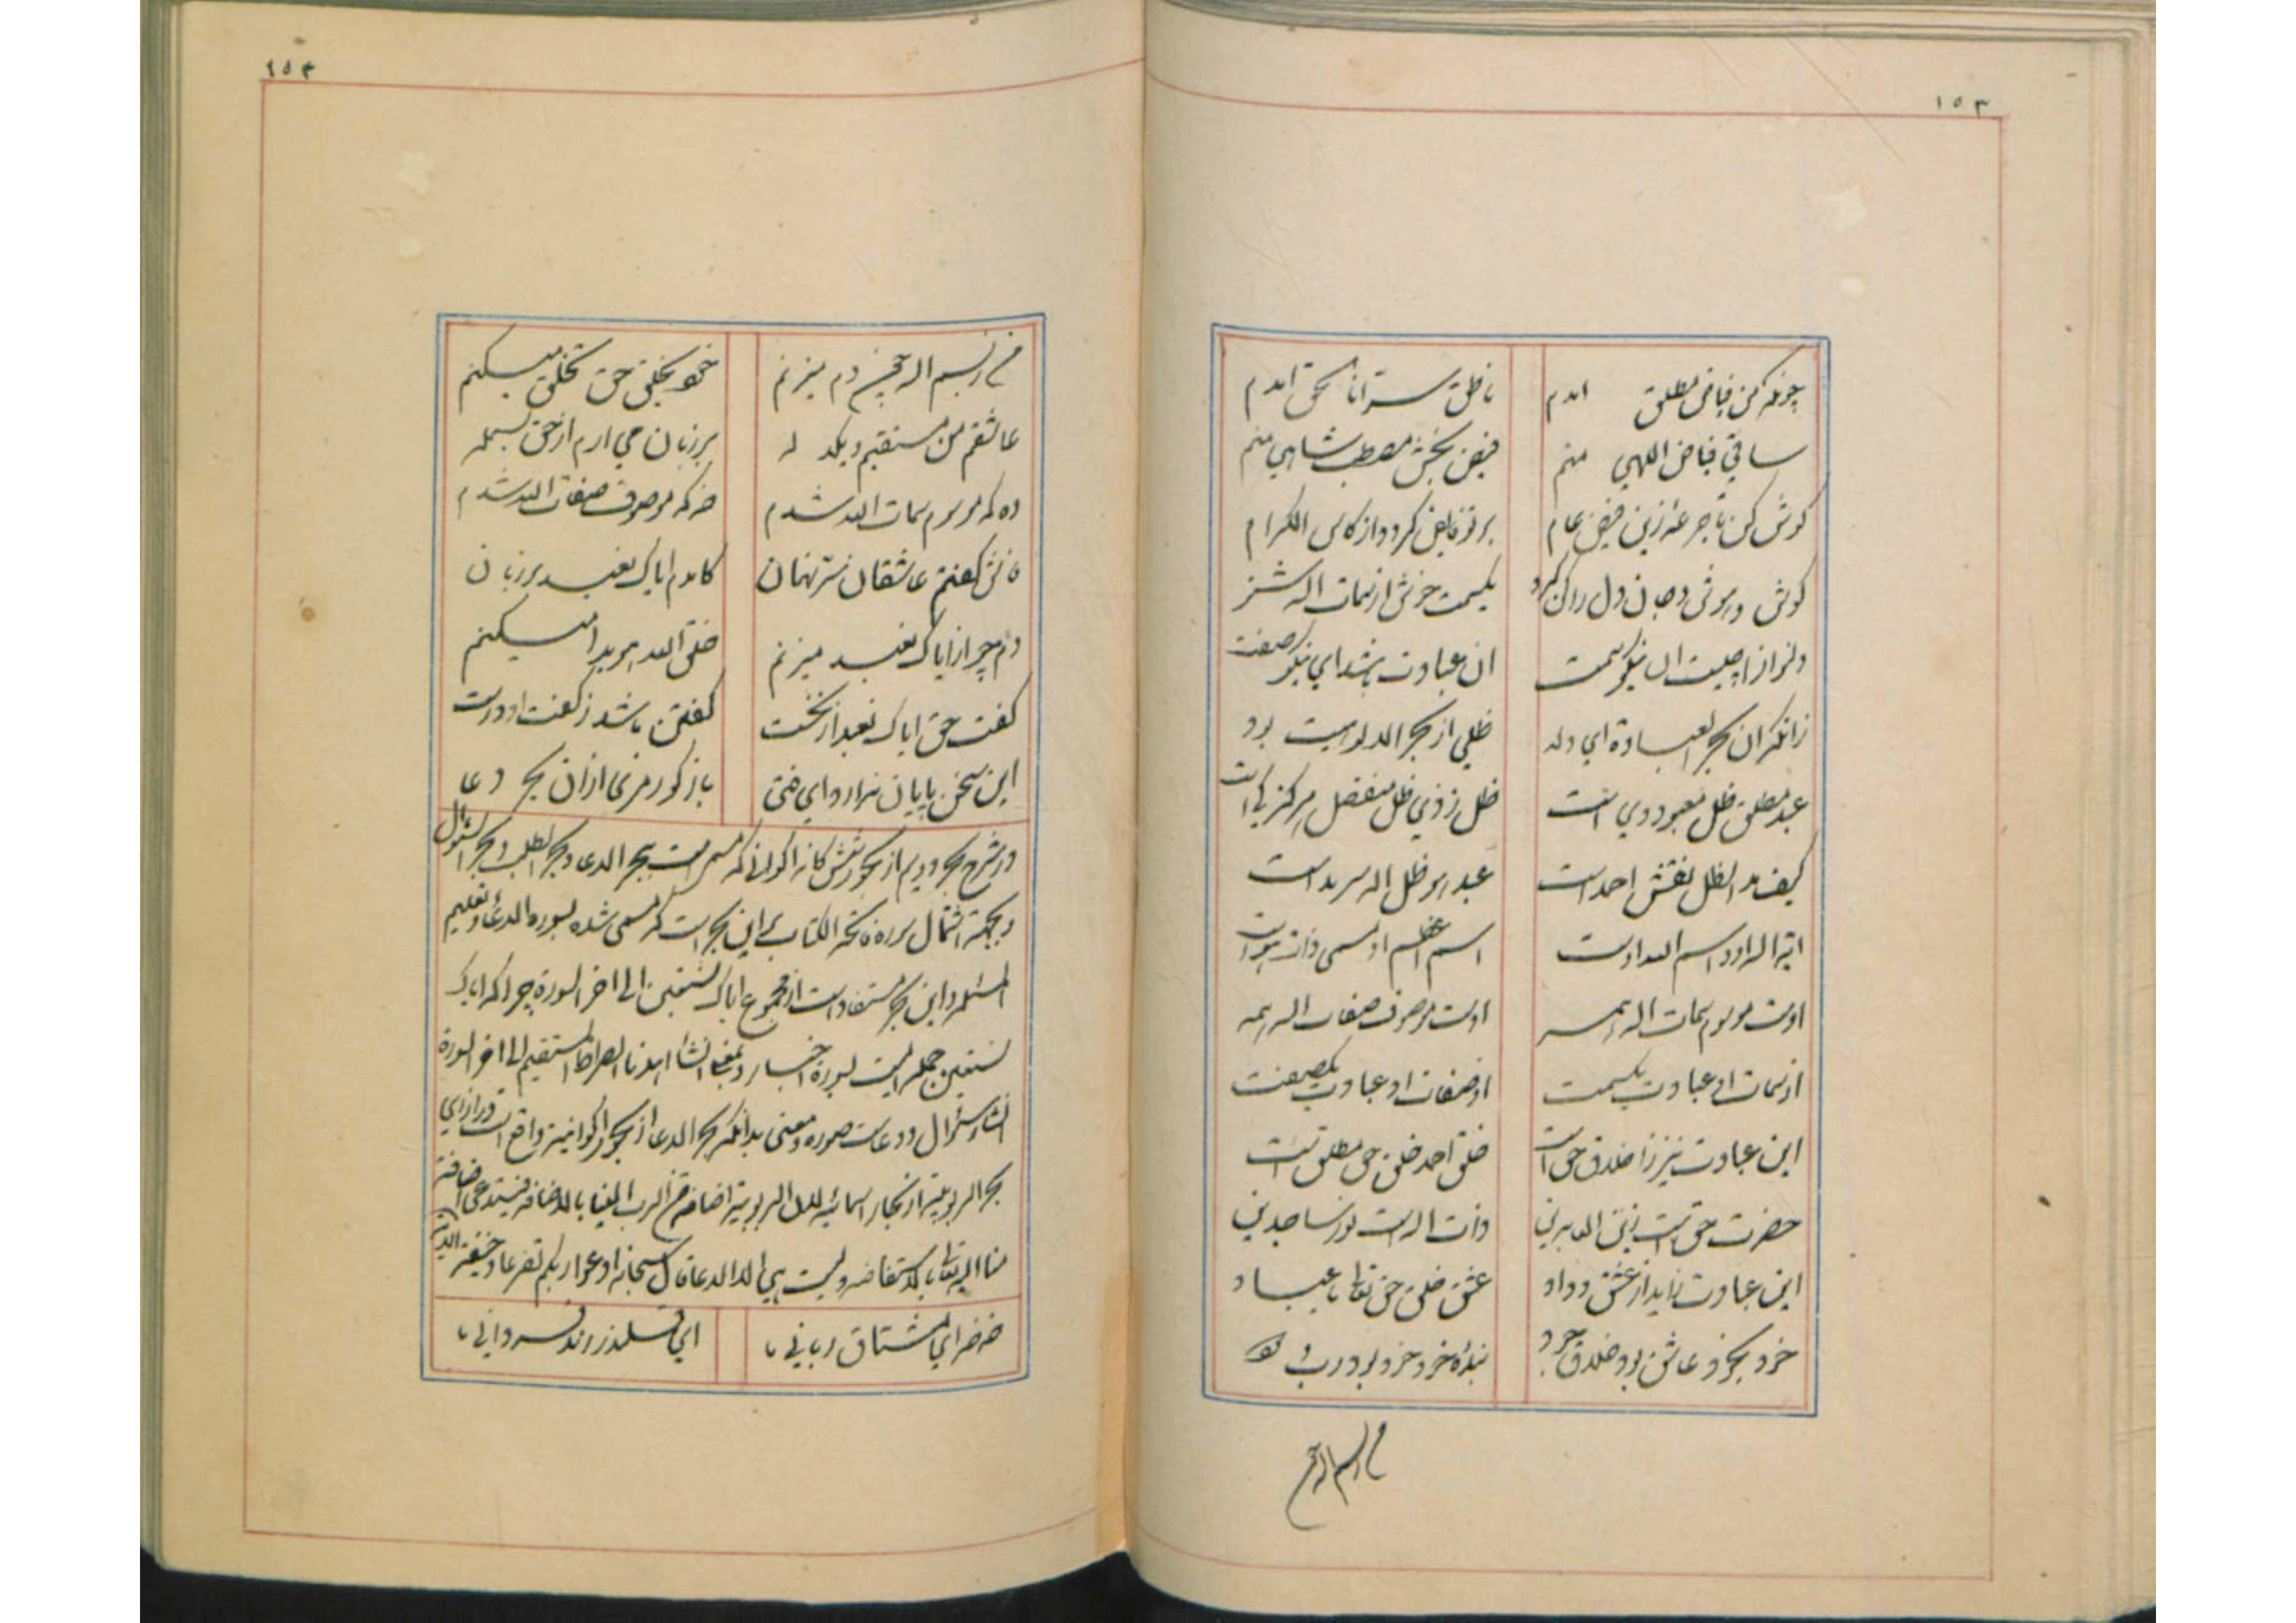 ١٥٣
چونکه من فیاض مطلق آمدم ناطق سر انا الحق آمدم
ساقی فیاض اللهی منم فیض بخش مصطب شاهی منم
کوش کن تا جرعه زین فیض عام بر تو فایض کردد از کاس الکرام
کوش و هوش و جان و دل را کن کرو یکسمت خوش از سمات اله شنو
ان عبادت باشد ای نیکو صفت
زانکه ان بحر العبادة ای ولد ظلی از بحر الالوهیت بود
عبد مطلق ظل معبود وی است ظل ز ذی ظل منفصل هرکز کی است
کیف مد الظل نقش احمد است عبد هو ظل اله سرمد است
ایة اله او و اسم الله اوست اسم اعظم او مسمی ذات هوست
اوست موسوم سمات اله همه اوست موصوف صفات اله همه
از سمات او عبادت یکسمت از صفات او عبادت یکصفت
این عبادت نیز ز اخلاق حق است خلق احمد خلق حق مطلق است
حضرت حق است زین العابدین ذات اله است نور ساجدین
این عبادت زاید از عشق و وداد عشق خلق حق تعالی با عباد
خود بخود عاشق بود خلاق جود بنده خود خود بود رب ودود
من ز بسم اله
١٥٤
من ز بسم اله چنین دم میزنم خو بخلق حق تخلق میکنم
عاشقم من مستقیم و یکدله بر زبان می ارم از حق بسمله
ده که موسوم سمات الله شدم خه که موصوف صفات الله شدم
فاش کفتم عاشقان سر نهان کامدم ایاک نعبد بر زبان
دم چو از ایاک نعبد میزنم خلق الله هویدا میکنم
کفت حق ایاک نعبد از نخست کفتن ما شد ز کفت او درست
این سخن پایان ندارد ای فتی باز کو رمزی از ان بحر دعا
در شرح بحر دویم از بحور شش کانه اکوانی که مسمی است ببحر الدعا و بحر الطلب و بحر السؤال
و بجهة اشتمال سوره فاتحة الکتاب بر این بحر است که مسمی شده بسوره الدعاء و تعلیم
المسئله و این بحر مستفاد است از مجموع ایاک نستعین الی اخر السورة چرا که ایاک
نستعین جمله ایست بسورة اخبار و بمعنی انشا اهدنا الصراط المستقیم الی اخر السورة
انشا و سؤال و دعاست صورة و معنی بدانکه بحر الدعا از بحور اکوانیه واقع است در ازای
بحر الربوبیة از بحار اسمائیه لان الربوبیة اضافة من الرب الینا بالافاضه فیستدعی اضافة
منا الیه تعالی بالاستفاضه و لیست هی الا الدعا قال سبحانه ادعوا ربکم تضرعا و خیفة
خه خه ای مشتاق ربانی ما ای قلندر رند فردانی ما